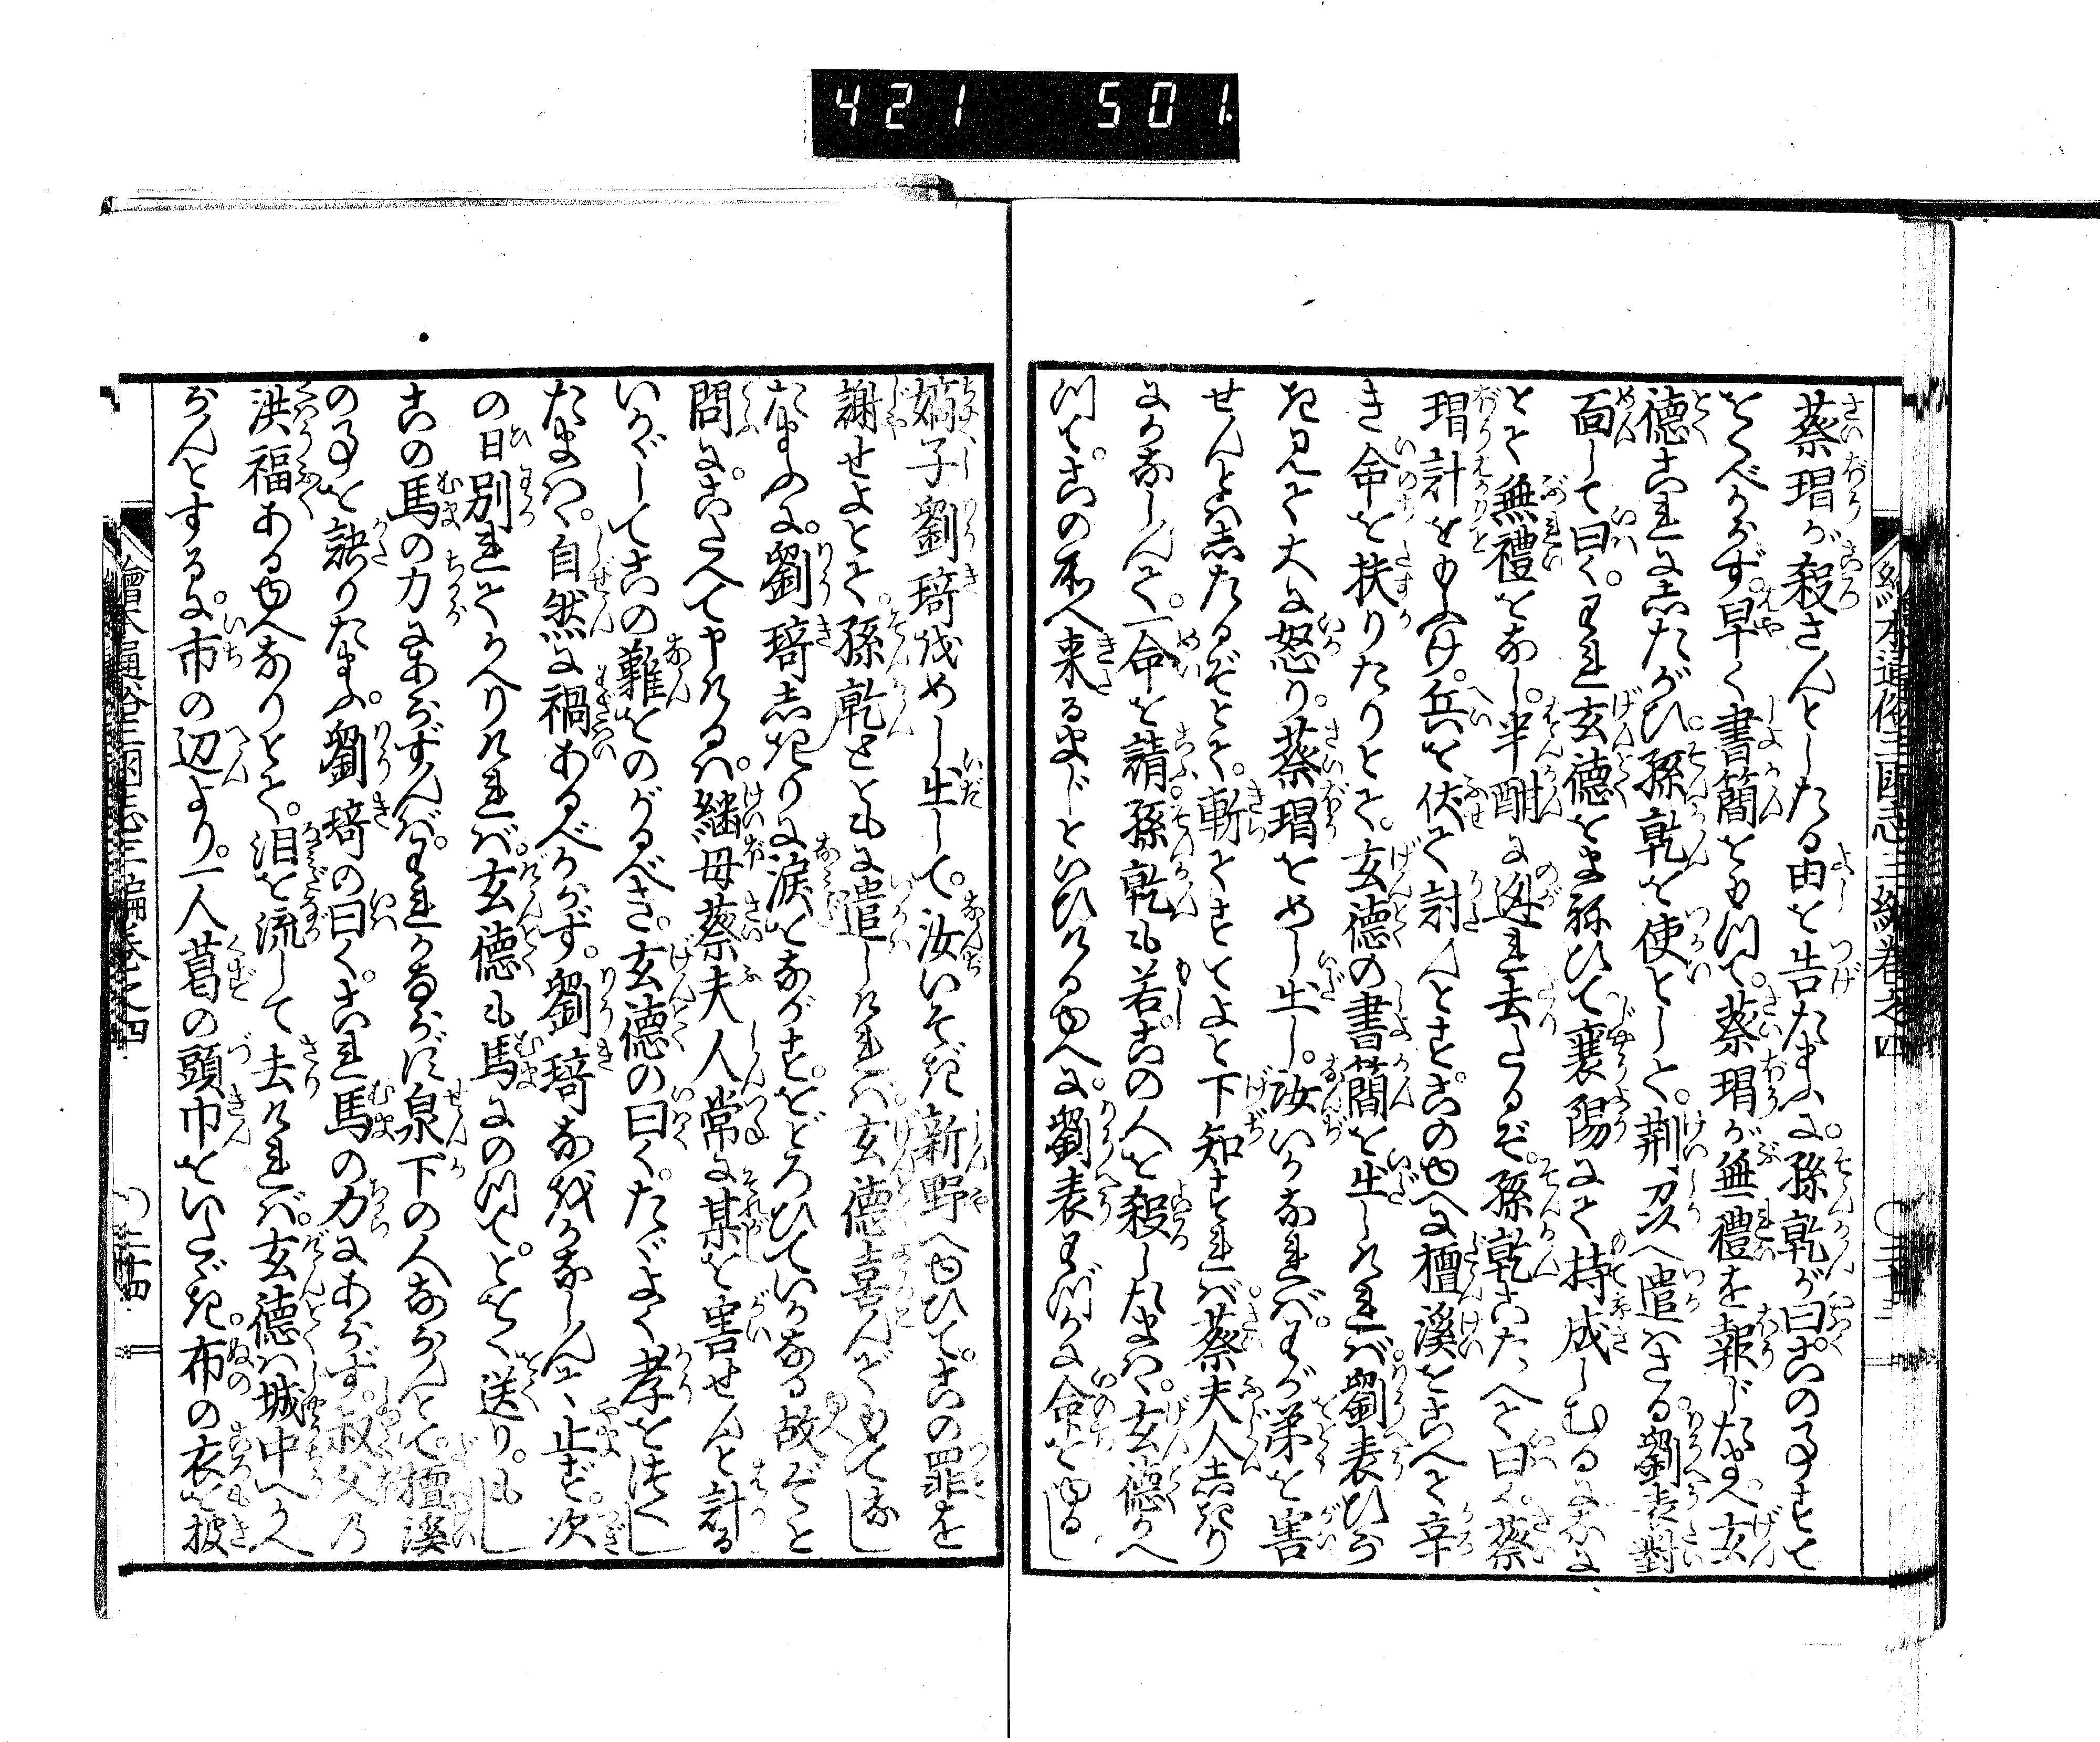 421 501
繪本通俗三國志三編卷之四
蔡瑁が殺さんとしたる由を告たまふに。孫乾が曰この事すて
をくべからず。早く書簡をもつて。蔡瑁が無禮を報じたまへ玄
徳これにしたがひ。孫乾を使として。荊州へ遣はさる。劉表對
面して曰く。われ玄徳をまねひて。襄陽にて持成しむるに。なに
とて無禮をなし。半酣に迯れ去たるぞ。孫乾こたへて曰く。蔡
瑁計をまふけ。兵を伏て討んとす。このゆへに檀溪をこへて辛
き命を扶りたりとて。玄徳の書簡を出しければ。劉表ひら
き見て大に怒り。蔡瑁をめし出し。汝いかなれば。わが弟を害
せんとはしたるぞとて。斬てすてよと下知すれば。蔡夫人しきり
にかなしんで。一命を請。孫乾も若この人を殺したまはゞ。玄徳かへ
つて。この所へ來るまじといひけるゆへに。劉表わづかに命をゆるし
嫡子劉琦をめし出して。汝いそぎ新野へゆひて。この罪を
謝せよとて。孫乾とともに遣しければ。玄徳喜んでもてなし
たまふに。劉琦しきりに涙をながす。をどろひていかなる故ぞと
問に。こたへて申けるは。継母蔡夫人常に某を害せんと計る
いかゞしてこの難をのがるべき。玄徳の曰く。たゞよく孝をつくし
たまはゞ。自然に禍あるべからず。劉琦なをかなしんで止ず。次
の日別れてかへりければ。玄徳も馬にのつて。とをく送り。もし
この馬の力にあらずんば。われかならず泉下の人ならんとて。檀溪
の事を語りたまふ。劉琦の曰く。これ馬の力にあらず。叔父乃
洪福あるゆへなりとて。泪を流して去ければ。玄徳は城中へかへ
らんとするに。市の辺より。一人葛の頭巾をいたゞき。布の衣を披
繪本通俗三國志三編卷之四
〇三十四